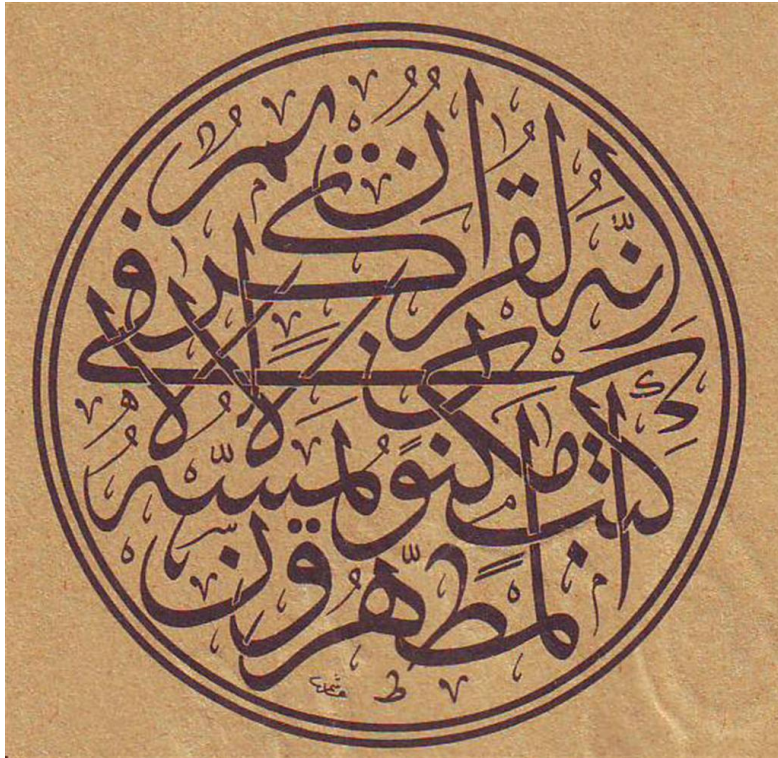 إنه لقرآن كريم
في كتاب مكنون
لا يمسه إلا
المطهرون